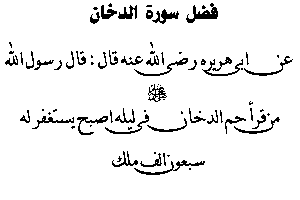 فضل سورة الدخان
عن ابى هريره رضى الله عنه قال : قال رسول الله
ﷺ
من قرأ حم الدخان فى ليله اصبح يستغفر له
سبعون الف ملك